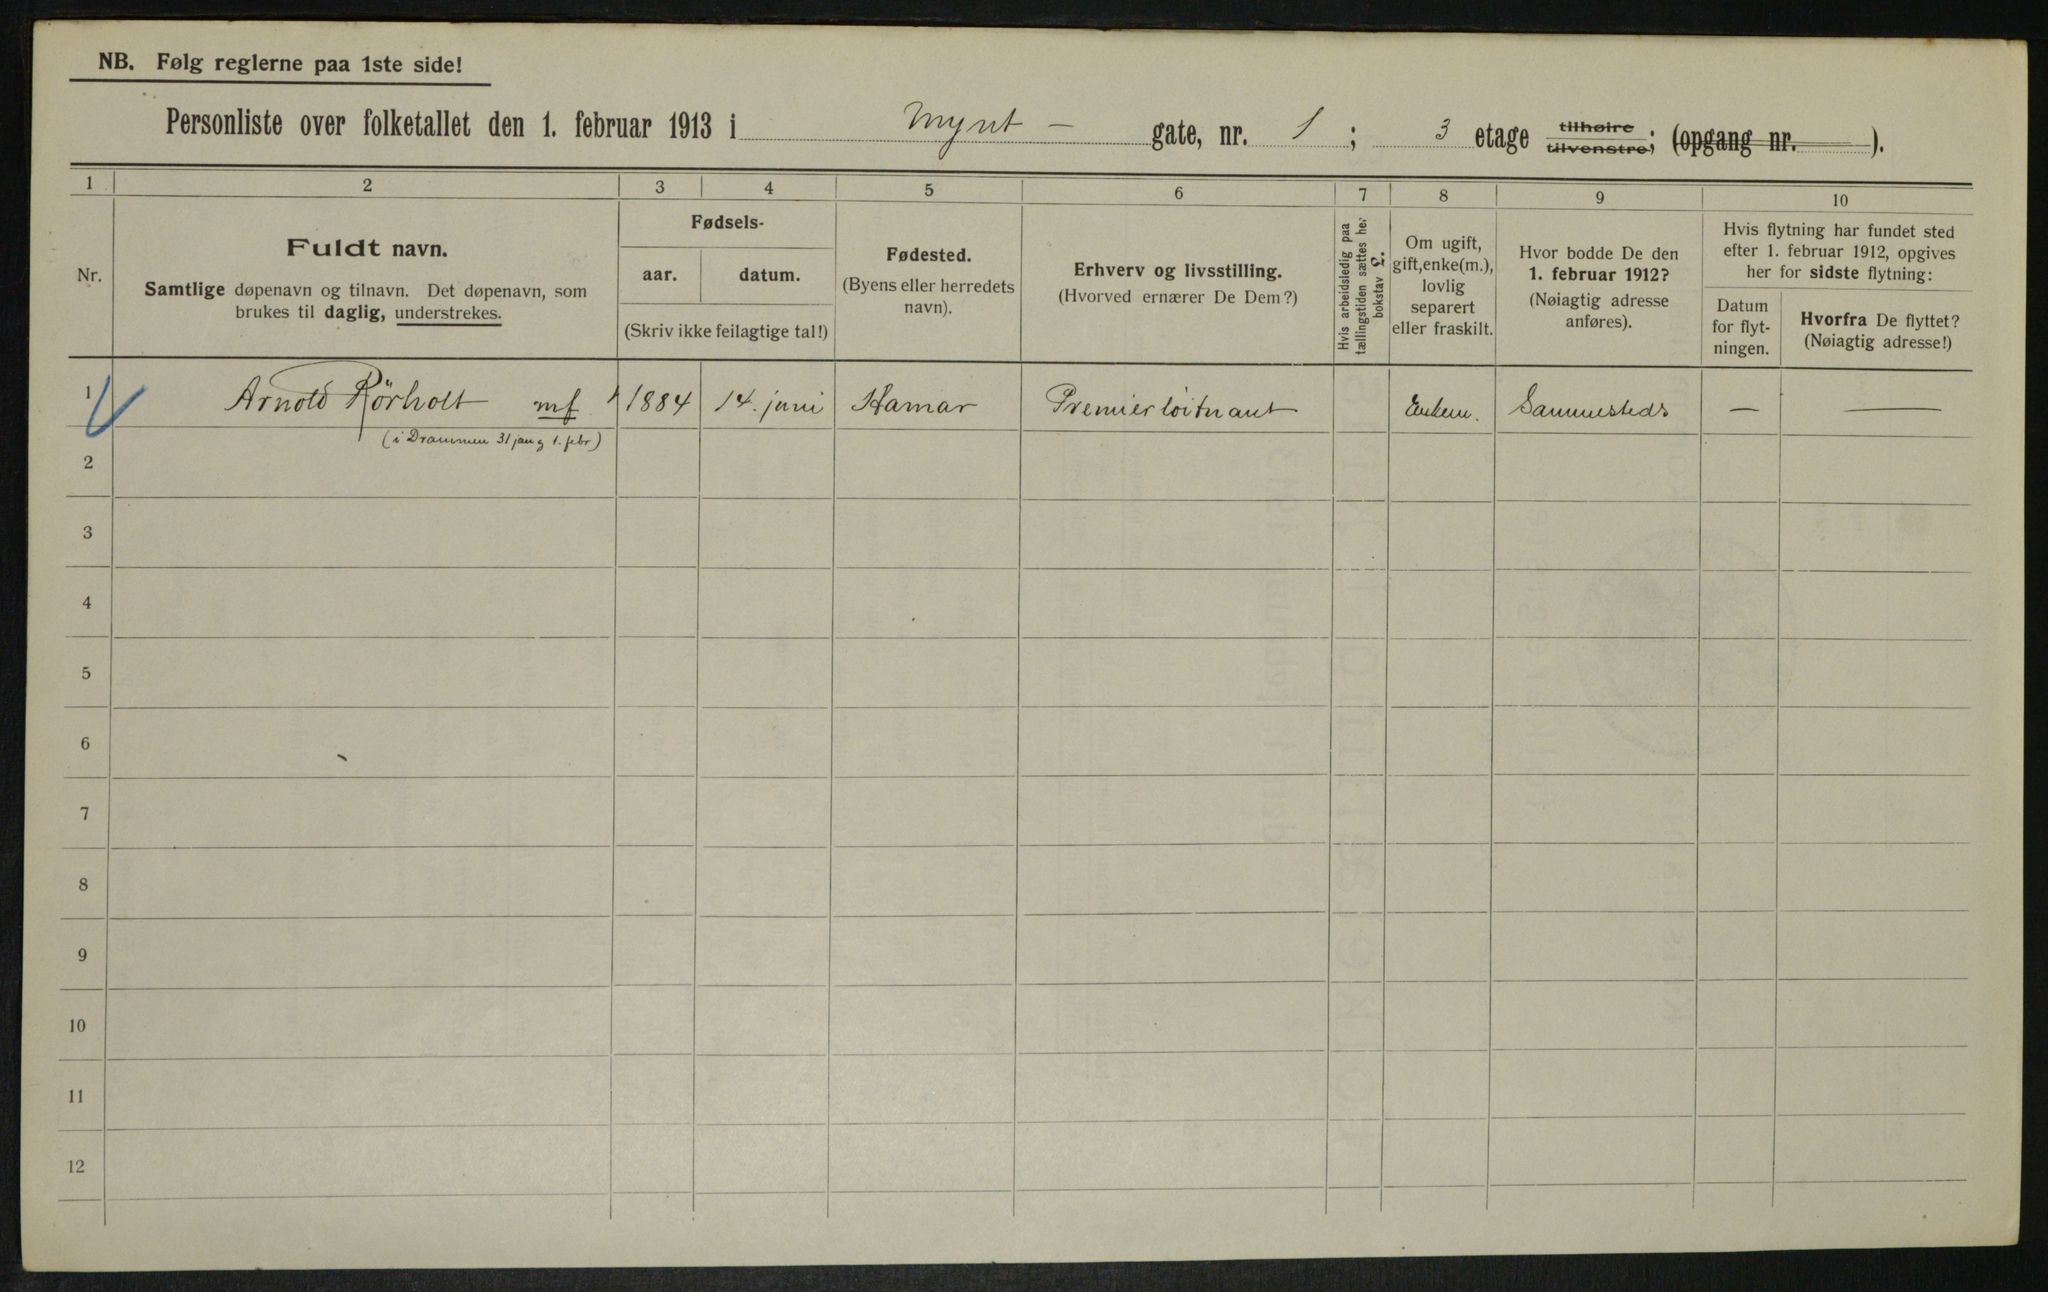 NB. Følg reglerne paa 1ste side!
Personliste over folketallet den 1. februar 1913 i Mynt- gate, nr. 1; 3 etage tilhøire tilvenstre; (opgang nr. ).
1 2 3 4 5 6 7 8 9 10
Nr.
Fuldt navn.
Samtlige døpenavn og tilnavn. Det døpenavn, som
brukes til daglig, understrekes.
Fødsels-
aar. datum.
(Skriv ikke feilagtige tal!)
Fødested.
(Byens eller herredets
navn).
Erhverv og livsstilling.
(Hvorved ernærer De Dem?)
Hvis arbeidsledig paa
tællingstiden sættes her
bokstav L.
Om ugift,
gift, enke(m.),
lovlig
separert
eller fraskilt.
Hvor bodde De den
1. februar 1912?
(Nøiagtig adresse
anføres).
Hvis flytning har fundet sted
efter 1. februar 1912, opgives
her for sidste flytning:
Datum
for flyt-
ningen.
Hvorfra De flyttet?
(Nøiagtig adresse!)
1 Arnold Rörholt mf 1884 14. juni Hamar Premierløitnant Enkem. Sammesteds — —
(i Drammen 31 jan og 1. febr)
2
3
4
5
6
7
8
9
10
11
12